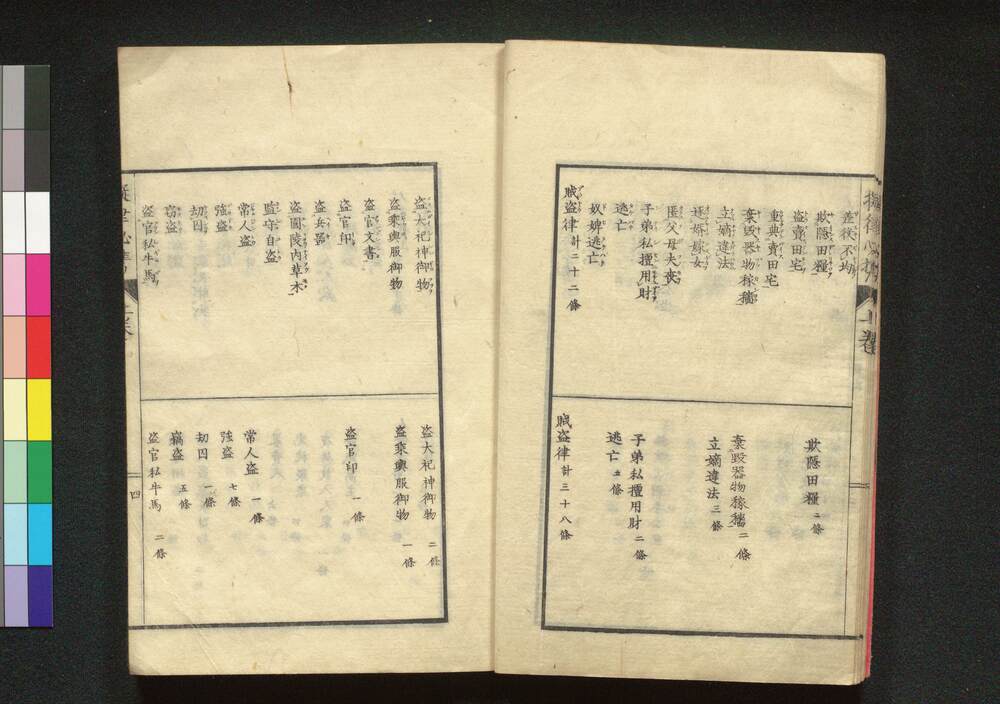 上巻
差役不均
欺隠田糧
盗賣田宅
重典賣田宅
棄毀器物稼穡
立嫡違法
逐婿嫁女
匿父母夫喪
子弟私擅用財
逃亡
奴婢逃亡
賊盗律計二十二條
欺隠田糧 二條
棄毀器物稼穡 二條
立嫡違法 三條
子弟私擅用財 二條
逃亡
賊盗律計三十八條
盗大祀神御物
盗乘輿服御物
盗官文書
盗官印
盗兵器
盗園陵内草木
監守自盗
常人盗
強盗
劫囚
窃盗
盗官私牛馬
盗大祀神御物 二條
盗乘輿服御物 一條
盗官印 一條
常人盗 一條
強盗 七條
劫囚 一條
竊盗 五條
盗官私牛馬 二條
四